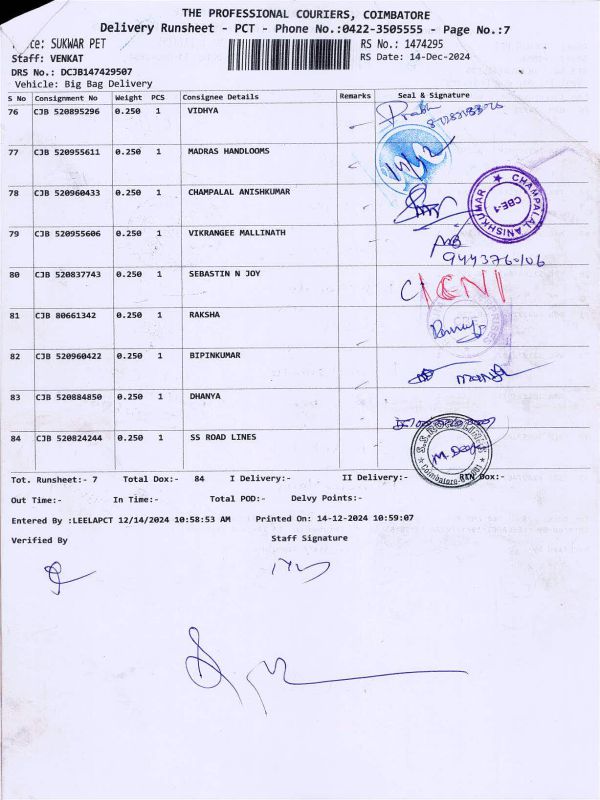 THE PROFESSIONAL COURIERS, COIMBATORE
Delivery Runsheet - PCT - Phone No.:0422-3505555 - Page No.:7
SUKWAR PET
RS No.: 1474295
Staff: VENKAT
RS Date: 14-Dec-2024
DRS No.: DCJB147429507
Vehicle: Big Bag Delivery
S No Consignment No Weight PCS Consignee Details Remarks Seal & Signature
76 CJB 520895296 0.250 1 VIDHYA
77 CJB 520955611 0.250 1 MADRAS HANDLOOMS
78 CJB 520960433 0.250 1 CHAMPALAL ANISHKUMAR
CHAMPALAL ANISHKUMAR
CBE-1
79 CJB 520955606 0.250 1 VIKRANGEE MALLINATH
80 CJB 520837743 0.250 1 SEBASTIN N JOY
81 CJB 80661342 0.250 1 RAKSHA
82 CJB 520960422 0.250 1 BIPINKUMAR
83 CJB 520884850 0.250 1 DHANYA
84 CJB 520824244 0.250 1 SS ROAD LINES
Tot. Runsheet:- 7 Total Dox:- 84 I Delivery:- II Delivery:- RTN Dox:-
Out Time:- In Time:- Total POD:- Delvy Points:-
Entered By :LEELAPCT 12/14/2024 10:58:53 AM Printed On: 14-12-2024 10:59:07
Verified By Staff Signature